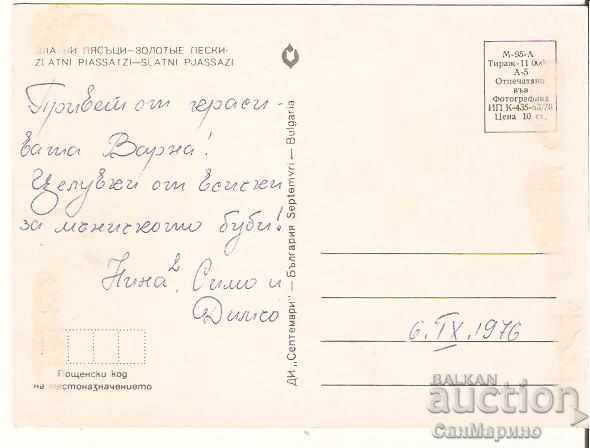 ЗЛАТНИ ПЯСЪЦИ—ЗОЛОТЫЕ ПЕСКИ-
ZLATNI PIASSATZI—SLATNI PJASSAZI
Привет от краси-
вата Варна!
Целувки от всички
за мъничкото буби!
Нина², Симо и
Димо
Пощенски код
на местоназначението
ДИ „Септември" — България Septemvri — Bulgaria
М-95-А
Тираж-11 000
А-5
Отпечатано
във
Фотографика
ИП К-435-63/76
Цена 10 ст.
6.IX.1976
BALKAN
auction
СанМарино